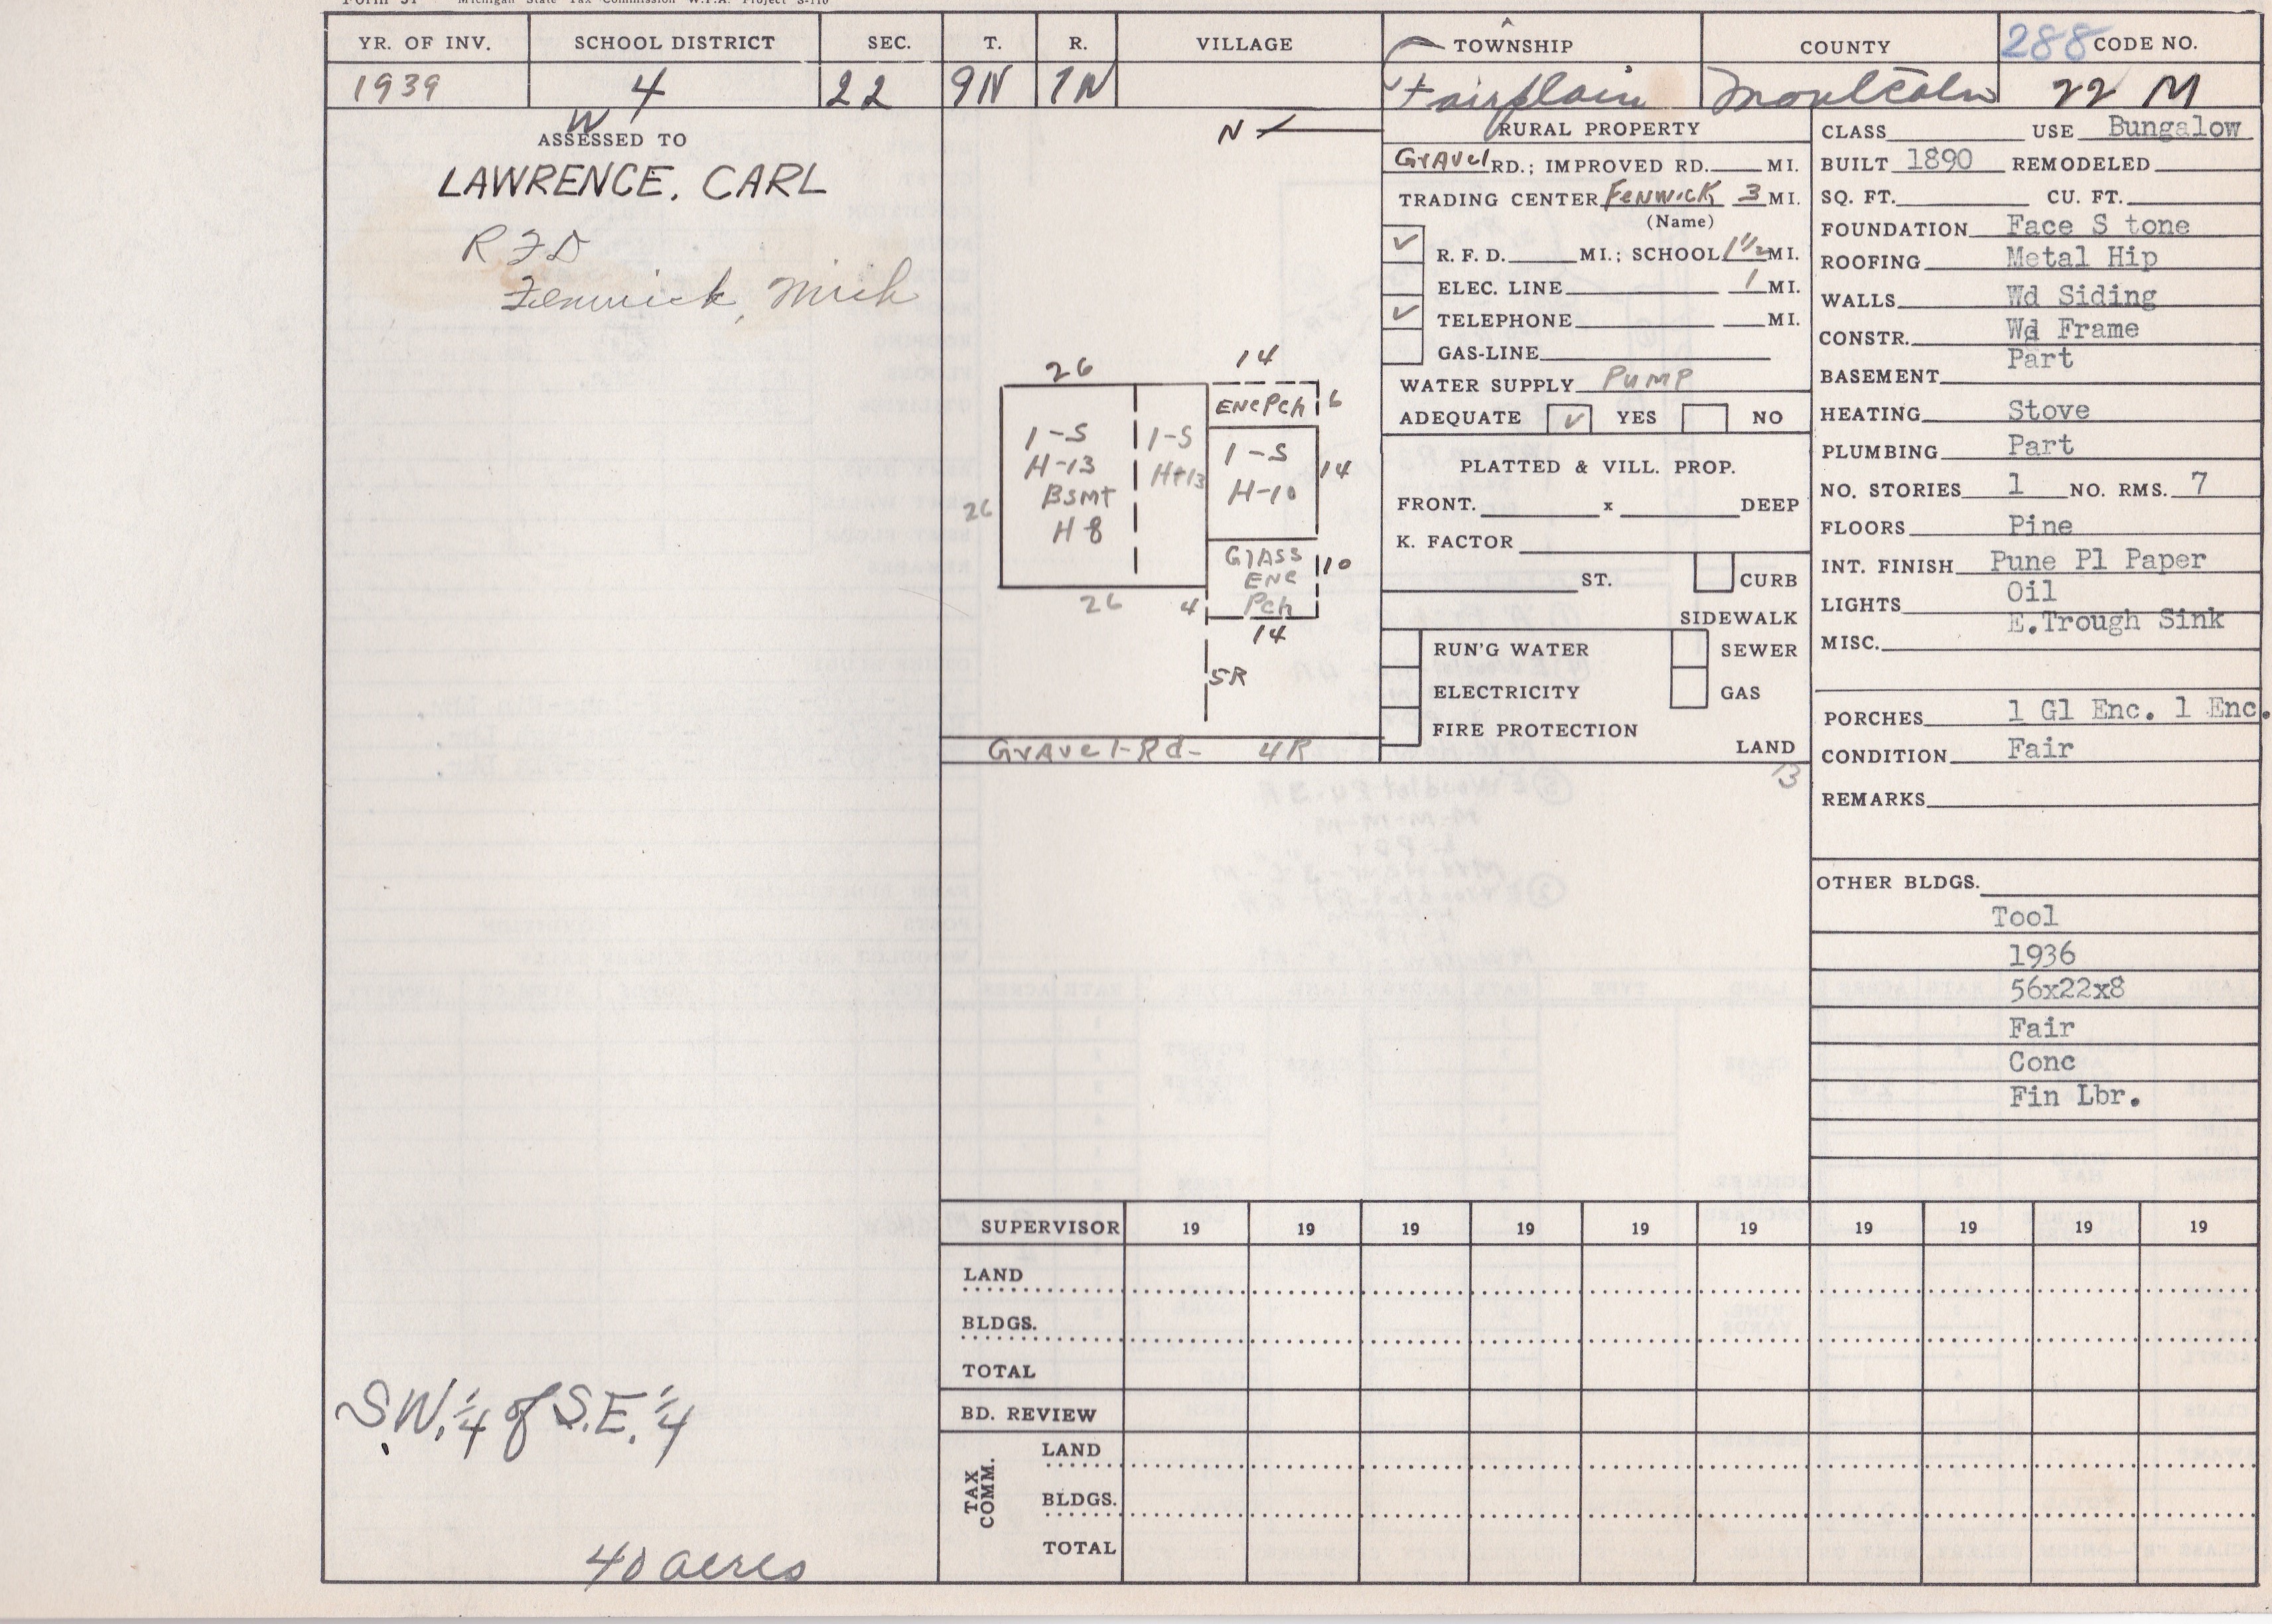 Form 31 Michigan State Tax Commission W.P.A. Project S-110
YR. OF INV. SCHOOL DISTRICT SEC. T. R. VILLAGE TOWNSHIP COUNTY 288 CODE NO.
1939 4 22 9N 7W Fairplain Montcalm 22 M
W
ASSESSED TO
LAWRENCE, CARL
RFD
Fenwick, Mich
S.W. 1/4 of S.E. 1/4
40 acres
N
26
14
Enc Pch 6
1-S
H-13
Bsmt
H 8
1-S
H-13
1-S
H-10
14
26
Glass
Enc
Pch
10
26
4
14
5R
Gravel-Rd- 4R
RURAL PROPERTY
Gravel RD.; IMPROVED RD. MI.
TRADING CENTER Fenwick 3 MI.
(Name)
✓ R. F. D. MI.; SCHOOL 1 1/2 MI.
ELEC. LINE 1 MI.
✓ TELEPHONE MI.
GAS-LINE
WATER SUPPLY Pump
ADEQUATE ✓ YES NO
PLATTED & VILL. PROP.
FRONT. x DEEP
K. FACTOR
ST. CURB
SIDEWALK
RUN'G WATER SEWER
ELECTRICITY GAS
FIRE PROTECTION
LAND
13
CLASS USE Bungalow
BUILT 1890 REMODELED
SQ. FT. CU. FT.
FOUNDATION Face S tone
ROOFING Metal Hip
WALLS Wd Siding
CONSTR. Wd Frame
BASEMENT Part
HEATING Stove
PLUMBING Part
NO. STORIES 1 NO. RMS. 7
FLOORS Pine
INT. FINISH Pune Pl Paper
LIGHTS Oil
MISC. E.Trough Sink
PORCHES 1 Gl Enc. 1 Enc.
CONDITION Fair
REMARKS
OTHER BLDGS.
Tool
1936
56x22x8
Fair
Conc
Fin Lbr.
SUPERVISOR 19 19 19 19 19 19 19 19 19 19
LAND
BLDGS.
TOTAL
BD. REVIEW
TAX COMM.
LAND
BLDGS.
TOTAL